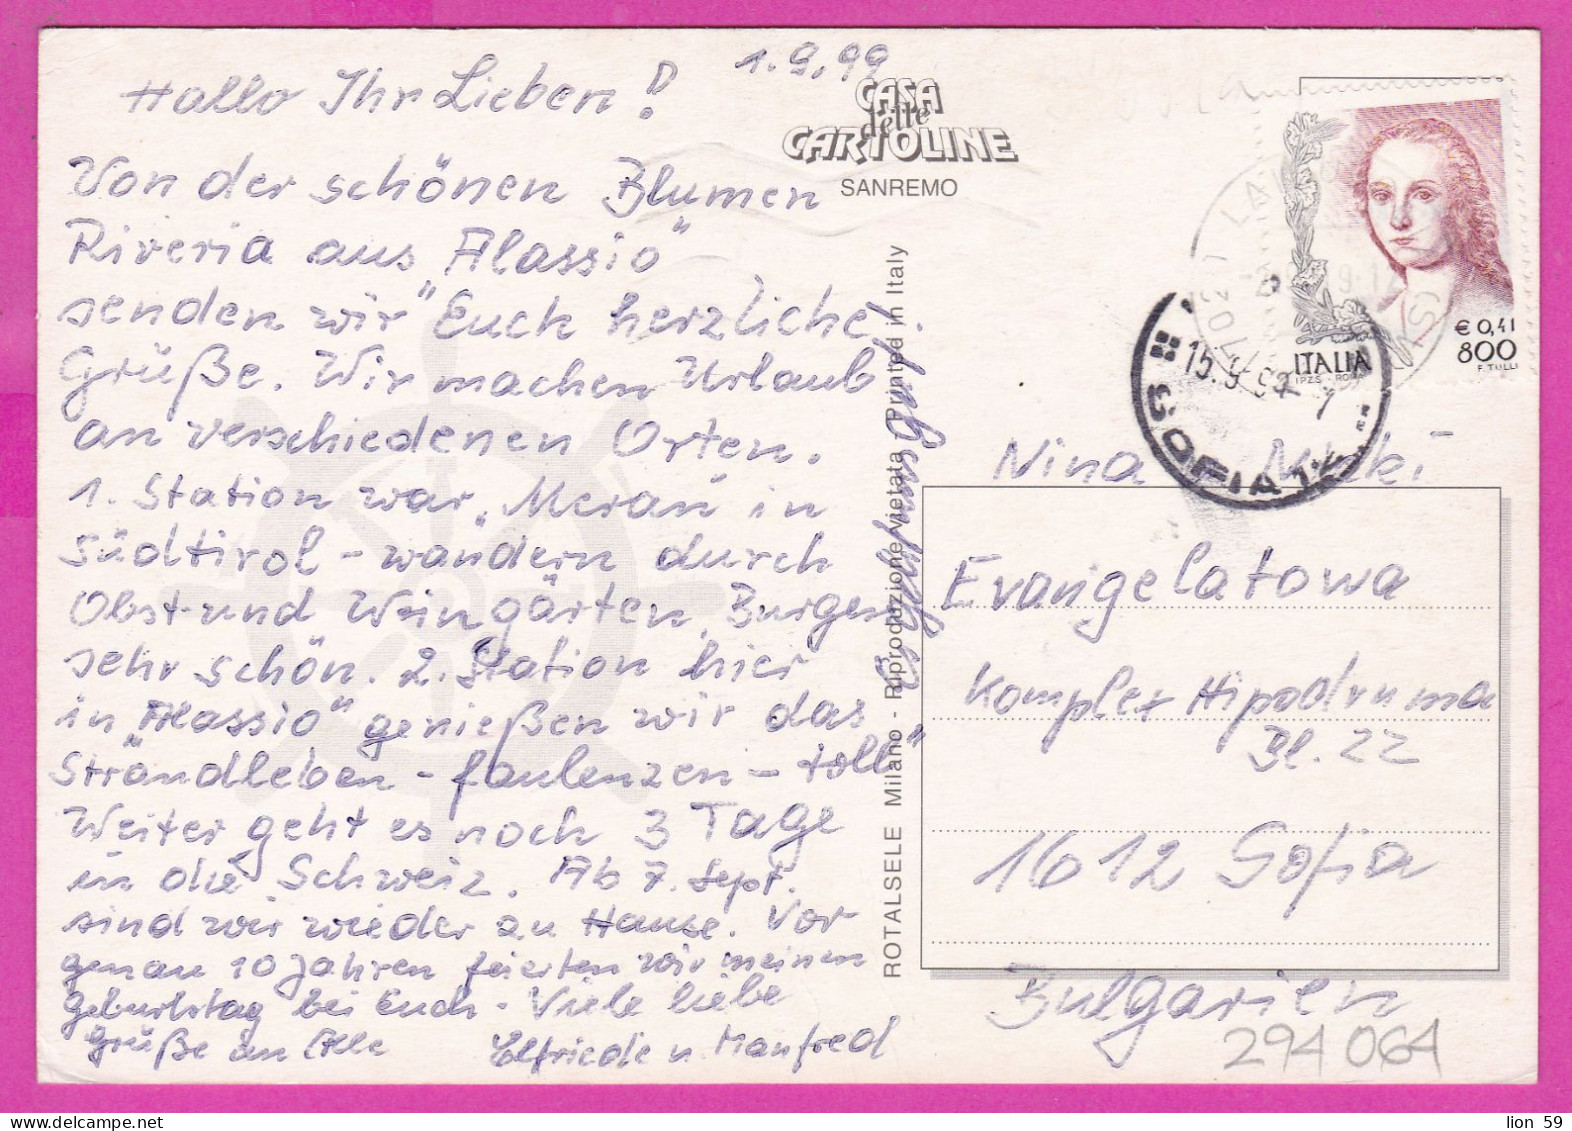 1.9.99
Hallo Ihr Lieben!
Von der schönen Blumen
Riveria aus "Alassio"
senden wir Euch herzliche
Grüße. Wir machen Urlaub
an verschiedenen Orten.
1. Station war "Meran" in
Südtirol - wandern durch
Obst- und Weingärten, Burgen
sehr schön. 2. Station hier
in "Alassio" genießen wir das
Strandleben - faulenzen - toll"
Weiter geht es noch 3 Tage
in die Schweiz. Ab 7. Sept.
sind wir wieder zu Hause. Vor
genau 10 Jahren feierten wir meinen
Geburtstag bei Euch. Viele liebe
Grüße an Alle
Elfriede u. Manfred
Es geht uns gut.
CASA
delle
CARTOLINE
SANREMO
ROTALSELE Milano - Riproduzione Vietata Printed in Italy
€ 0,41
800
ITALIA
I.P.Z.S. - ROMA
F. TULLI
SOFIA
Nina
Evangelatowa
Komplex Hipodruma
Bl. 22
1612 Sofia
Bulgarien
294064
lion 59